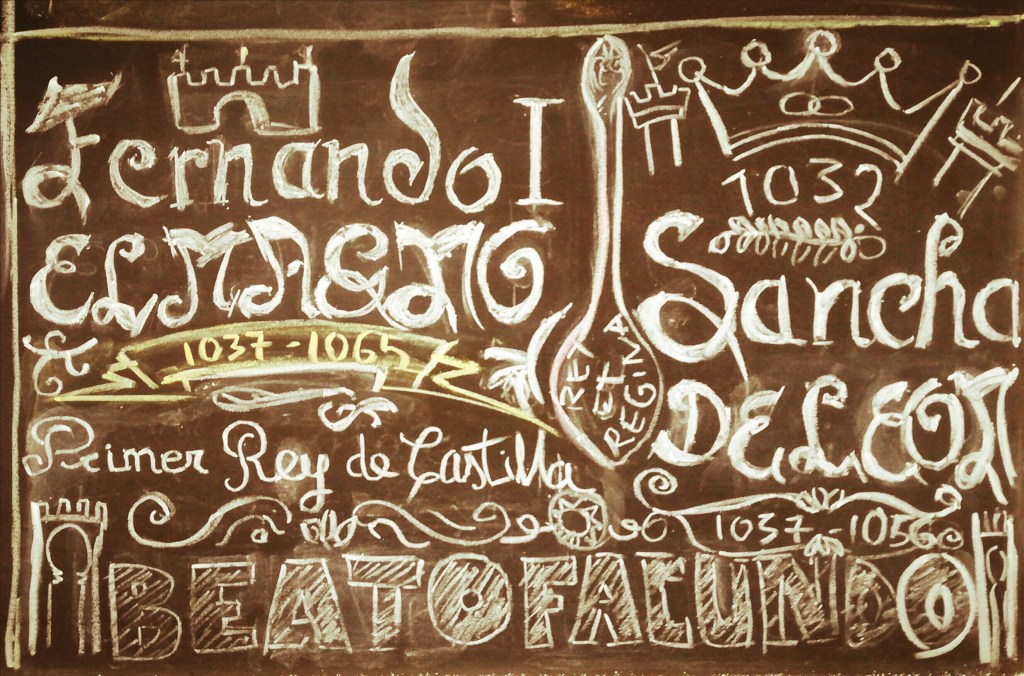 Fernando I
EL MAGNO
1037 - 1065
Primer Rey de Castilla
REY
ET
REGINA
1032
Sancha
DE LEON
1037 - 1056
BEATO FACUNDO